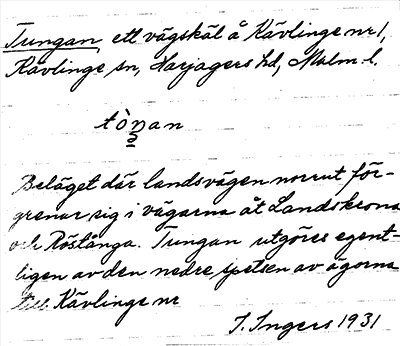 Tungan, ett vägskäl å Kävlinge nr 1,
Kävlinge sn, Harjagers hd, Malm. l.
tòŋan
Beläget där landsvägen norrut för-
grenar sig i vägarna åt Landskrona
och Röstånga. Tungan utgöres egent-
ligen av den nedre spetsen av ägorna
till Kävlinge nr
I. Ingers 1931